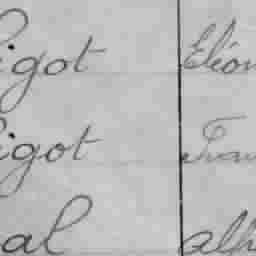 igot Eléon
igot Fran
al alh